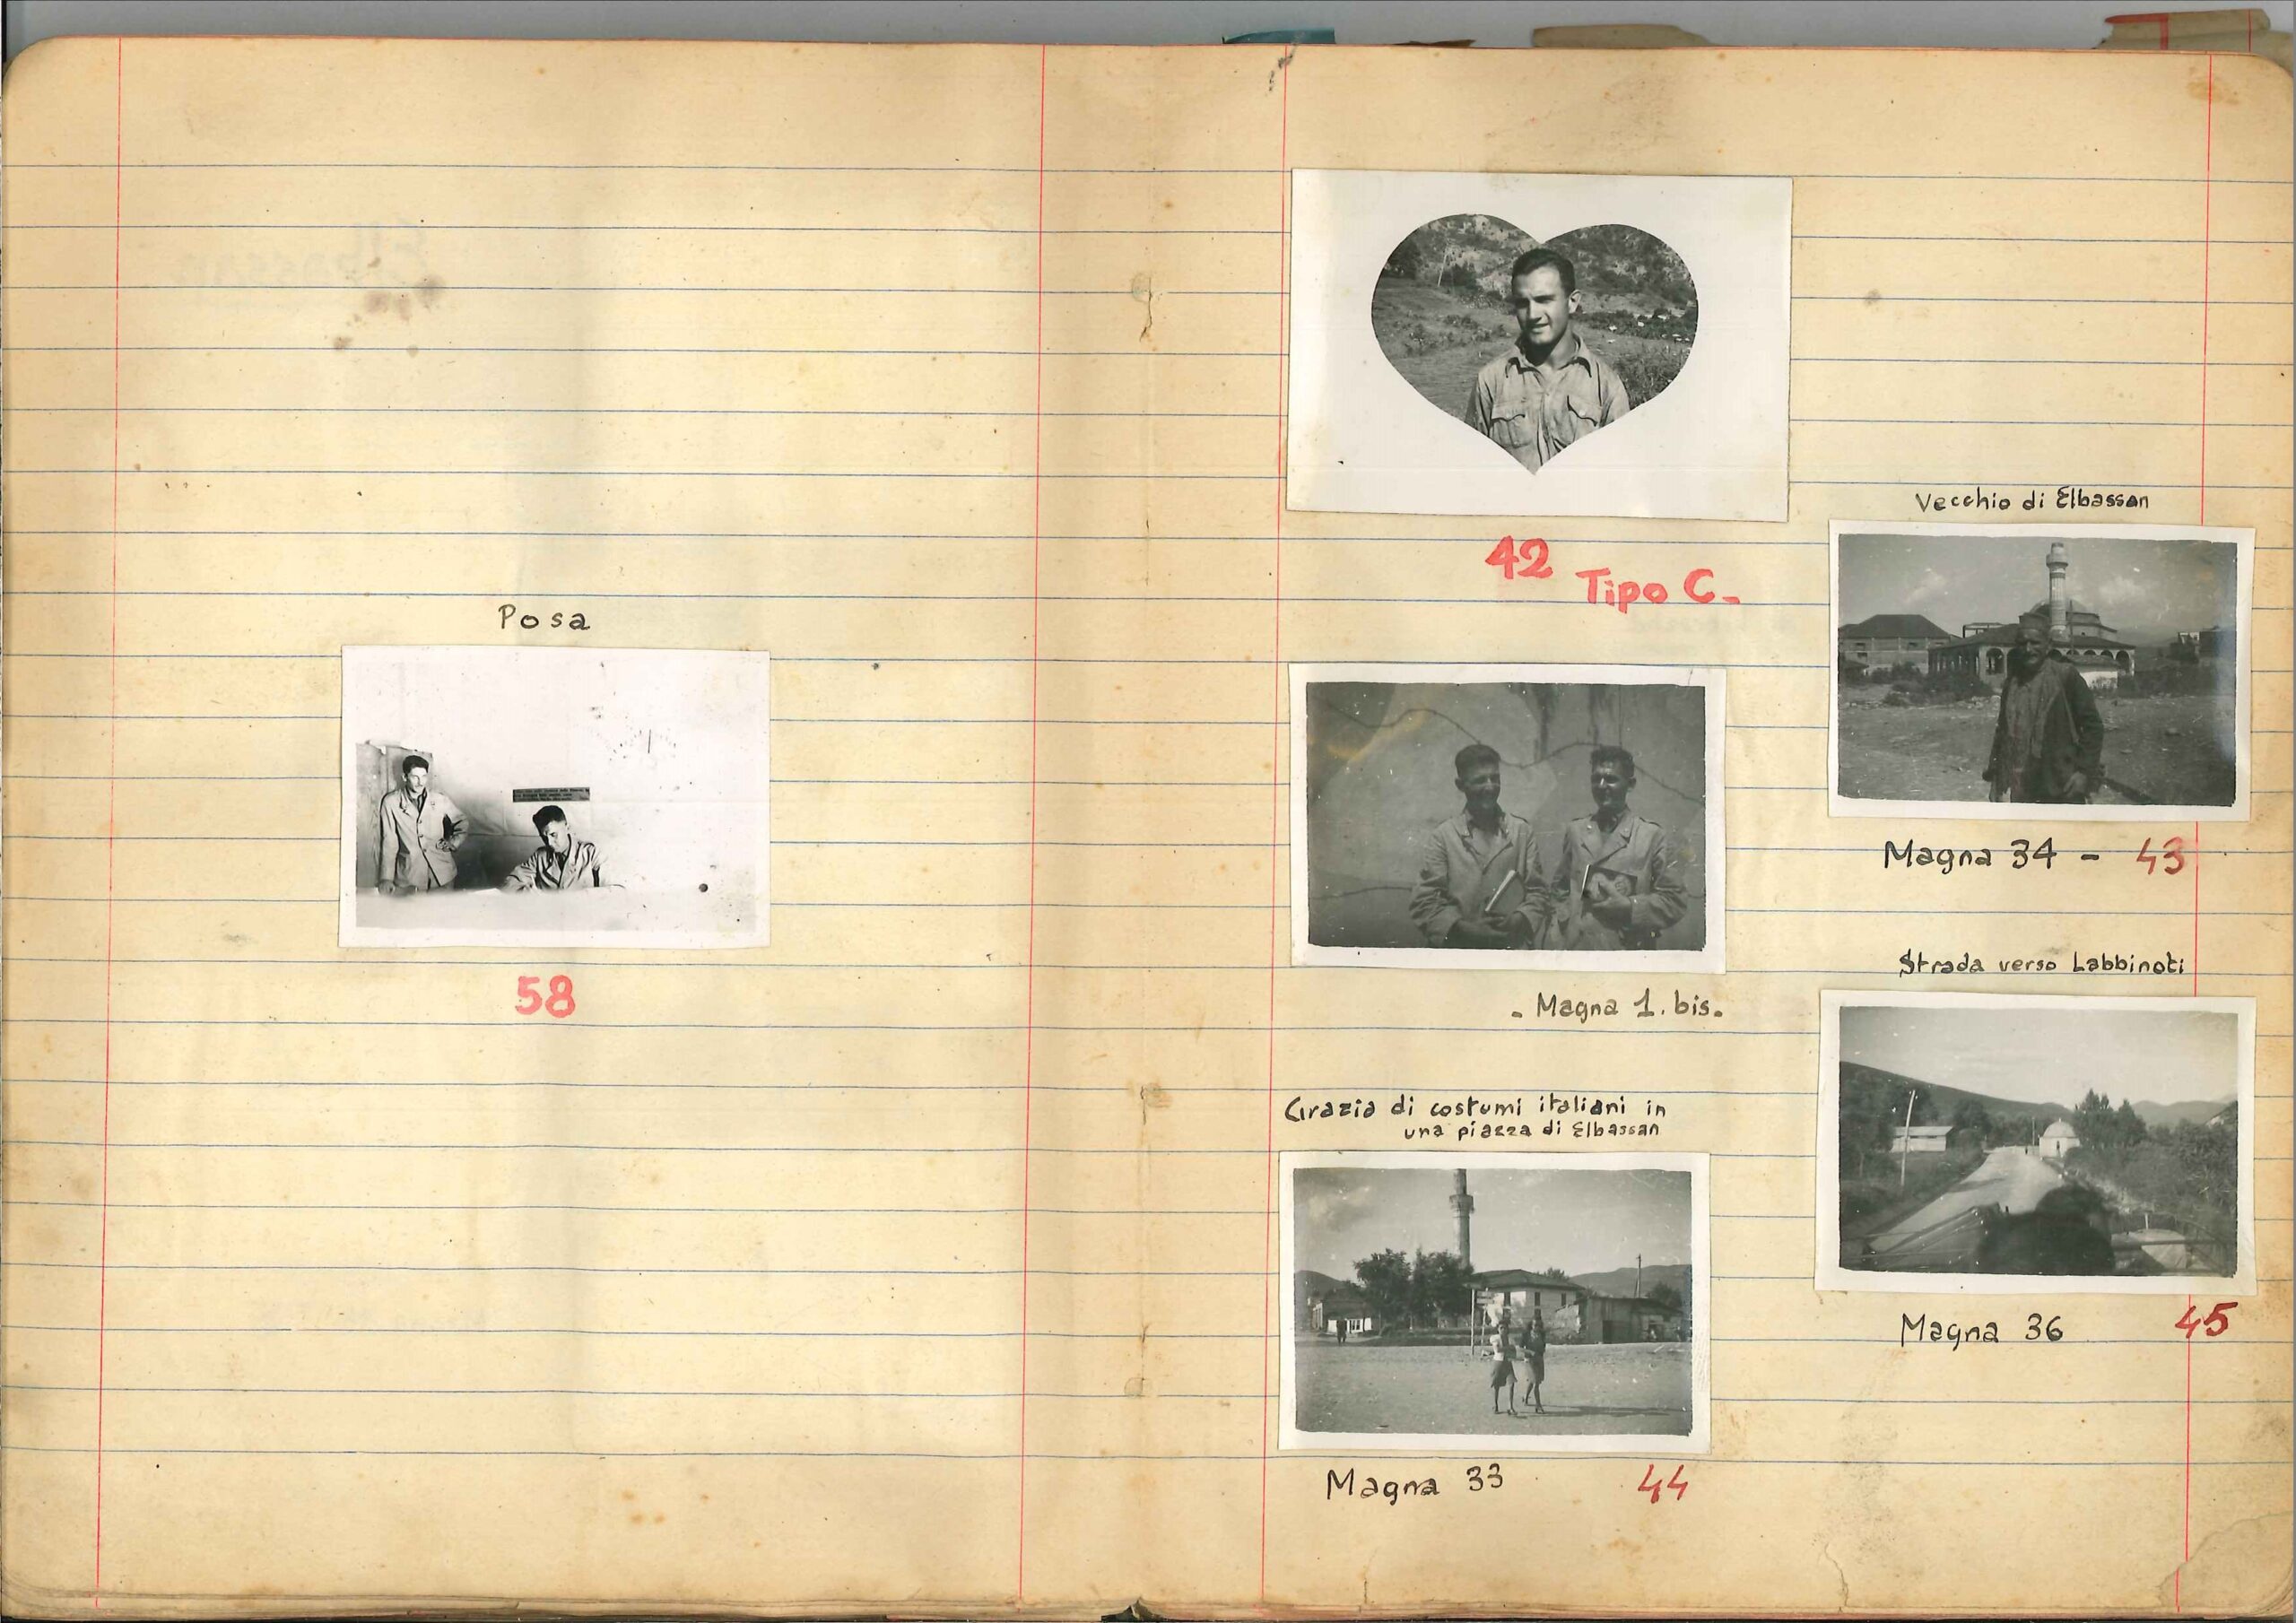 Posa
58
42 Tipo C-
Vecchio di Elbassan
Magna 34 - 43
- Magna 1. bis.
Strada verso Labbinoti
Magna 36 45
Grazia di costumi italiani in
una piazza di Elbassan
Magna 33 44